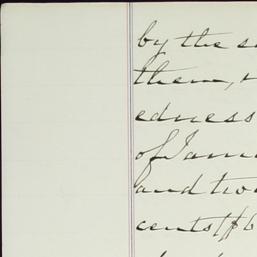 by the s
them,
edness
of Janu
and two
cents ($6